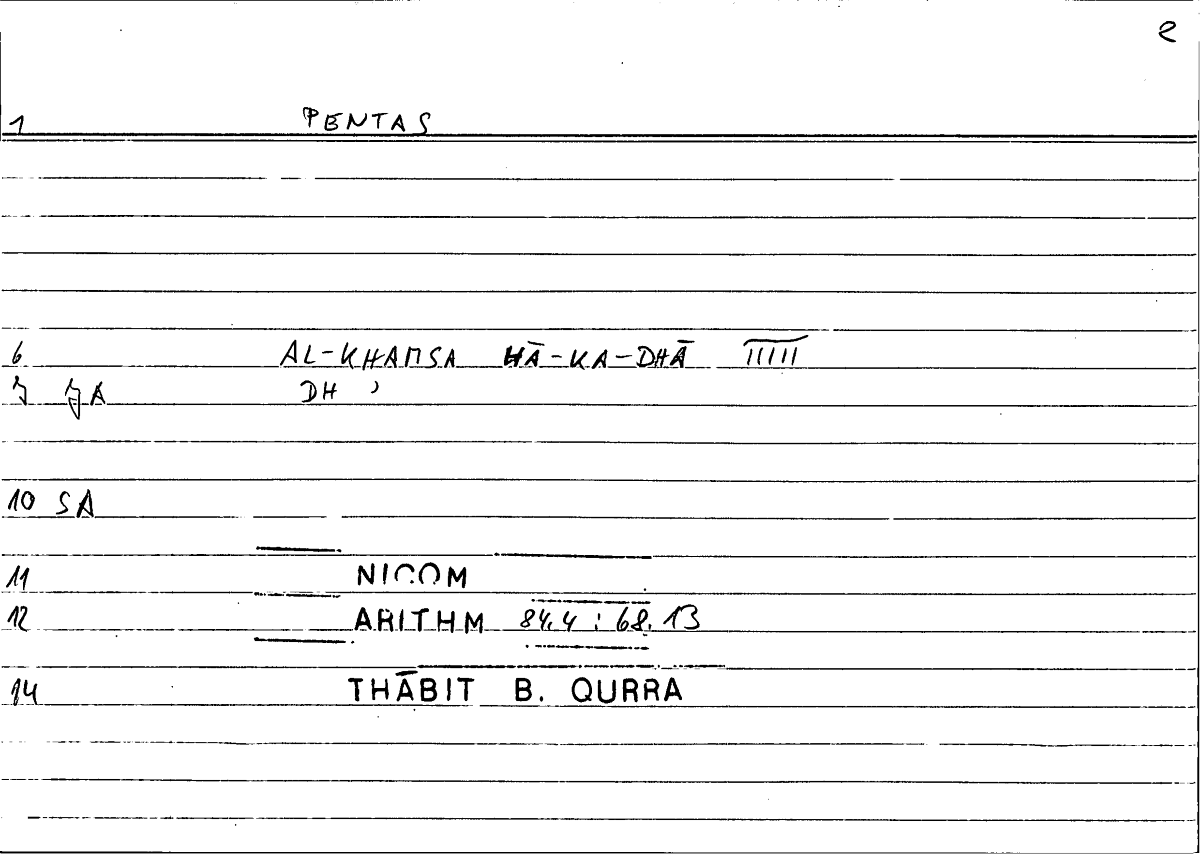 2
1 PENTAS
6 AL-KHAMSA HĀ-KA-DHĀ IIIII
DH ʾ
10 SA
11 NICOM
12 ARITHM 84.4 : 68.13
14 THĀBIT B. QURRA